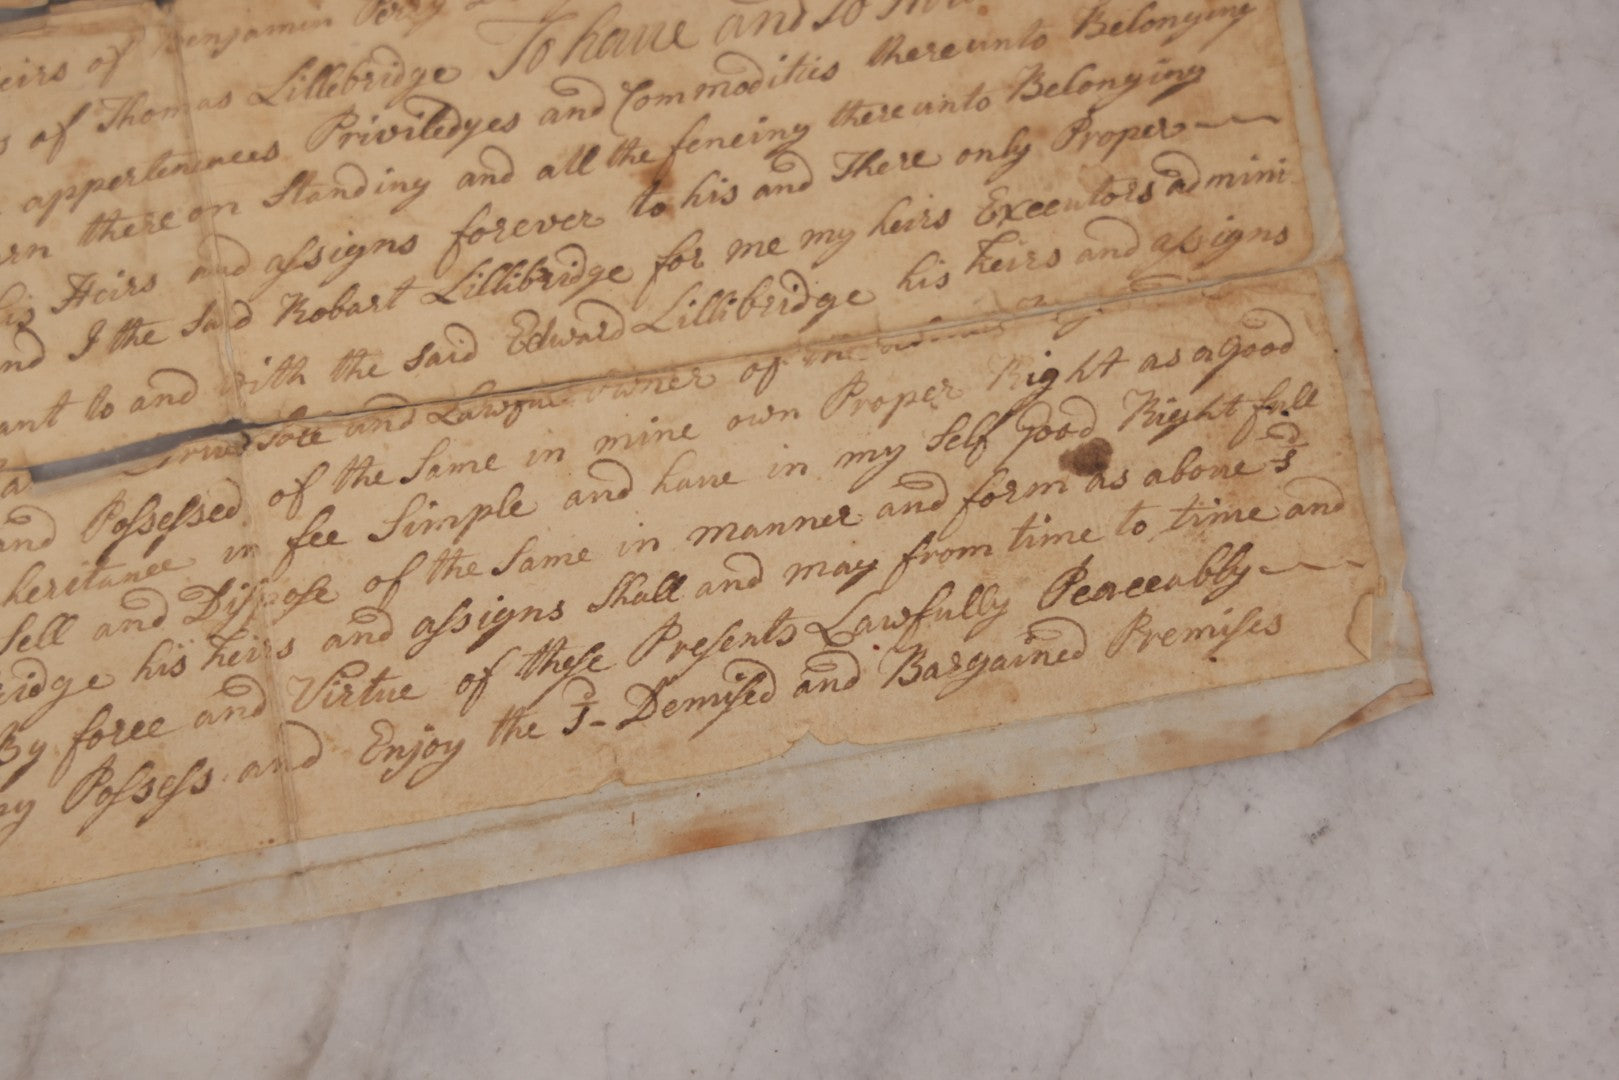 eirs of Benjamin Perry
s of Thomas Lillebridge To have and to
appertenences Priviledges and Commodities thereunto Belonging
rn thereon Standing and all the fencing thereunto Belonging
his Heirs and assigns forever to his and There only Proper
nd I the Said Robart Lillibridge for me my heirs Executors admini
ant to and with the Said Edward Lillibridge his heirs and assigns
Sole and Lawfull owner of the
and Possessed of the Same in mine own Proper Right as a good
heritance in fee Simple and have in my Self good Right full
Sell and Dispose of the Same in manner and form as above sd
ridge his heirs and assigns Shall and may from time to time and
By force and Virtue of these Presents Lawfully Peaceably
ny Possess and Enjoy the sd Demised and Bargained Premises